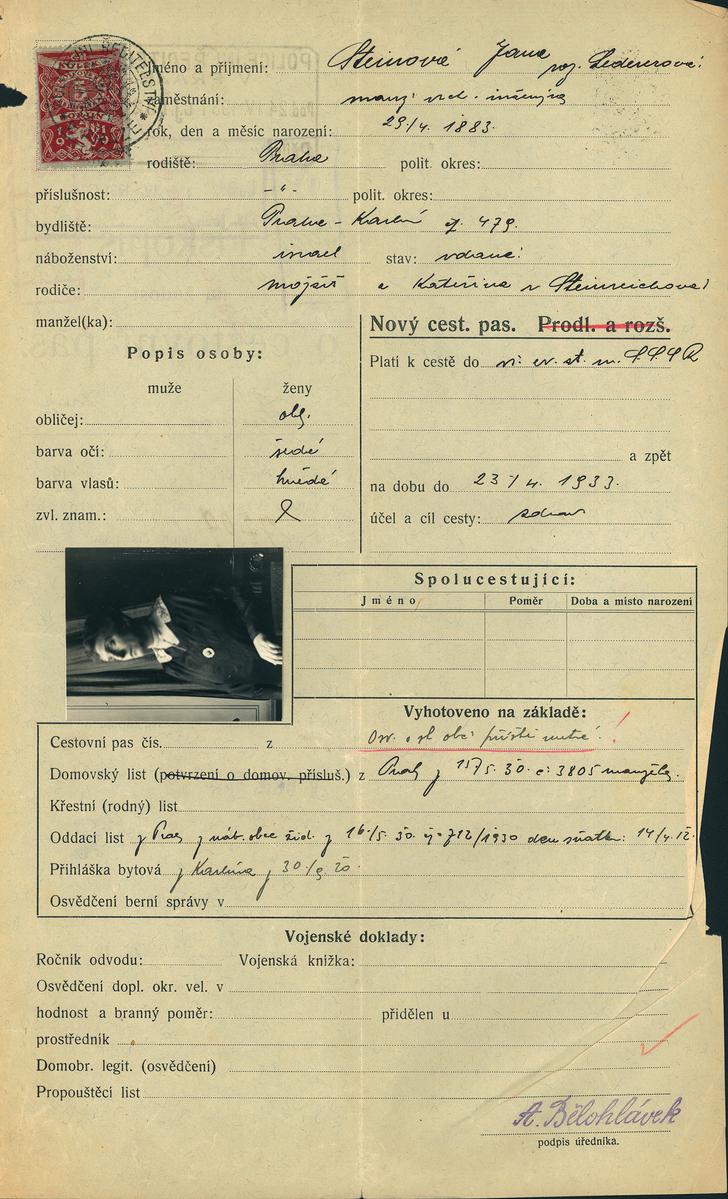 Jméno a příjmení: Steinová Jana roz. Ledererová
zaměstnání: manž. vrch. inženýra
rok, den a měsíc narození: 29/4. 1883.
rodiště: Praha polit. okres:
příslušnost: - " - polit. okres:
bydliště: Praha - Karlín čp. 479.
náboženství: israel stav: vdaná
rodiče: Mojžíš a Kateřina r Steinreichova
manžel(ka):
Popis osoby:
muže ženy
obličej: obl.
barva očí: šedé
barva vlasů: hnědé
zvl. znam.:
Nový cest. pas. Prodl. a rozš.
Platí k cestě do vš. ev. st. m. S.S.S.R
a zpět
na dobu do 23/4. 1933.
účel a cíl cesty: zdrav
Spolucestující:
Jméno Poměr Doba a místo narození
Vyhotoveno na základě:
Cestovní pas čís. z Osv. o st. obč. příště nutné!
Domovský list (potvrzení o domov. přísluš.) z Prahy z 15/5. 30. č: 3805 manžela.
Křestní (rodný) list
Oddací list z Prahy z náb. obce žid. z 16/5. 30. čj. 712/1930 den sňatku: 14/4. 12.
Přihláška bytová z Karlína z 30/9 20.
Osvědčení berní správy v
Vojenské doklady:
Ročník odvodu: Vojenská knížka:
Osvědčení dopl. okr. vel. v
hodnost a branný poměr: přidělen u
prostředník
Domobr. legit. (osvědčení)
Propouštěcí list
A. Bělohlávek
podpis úředníka.